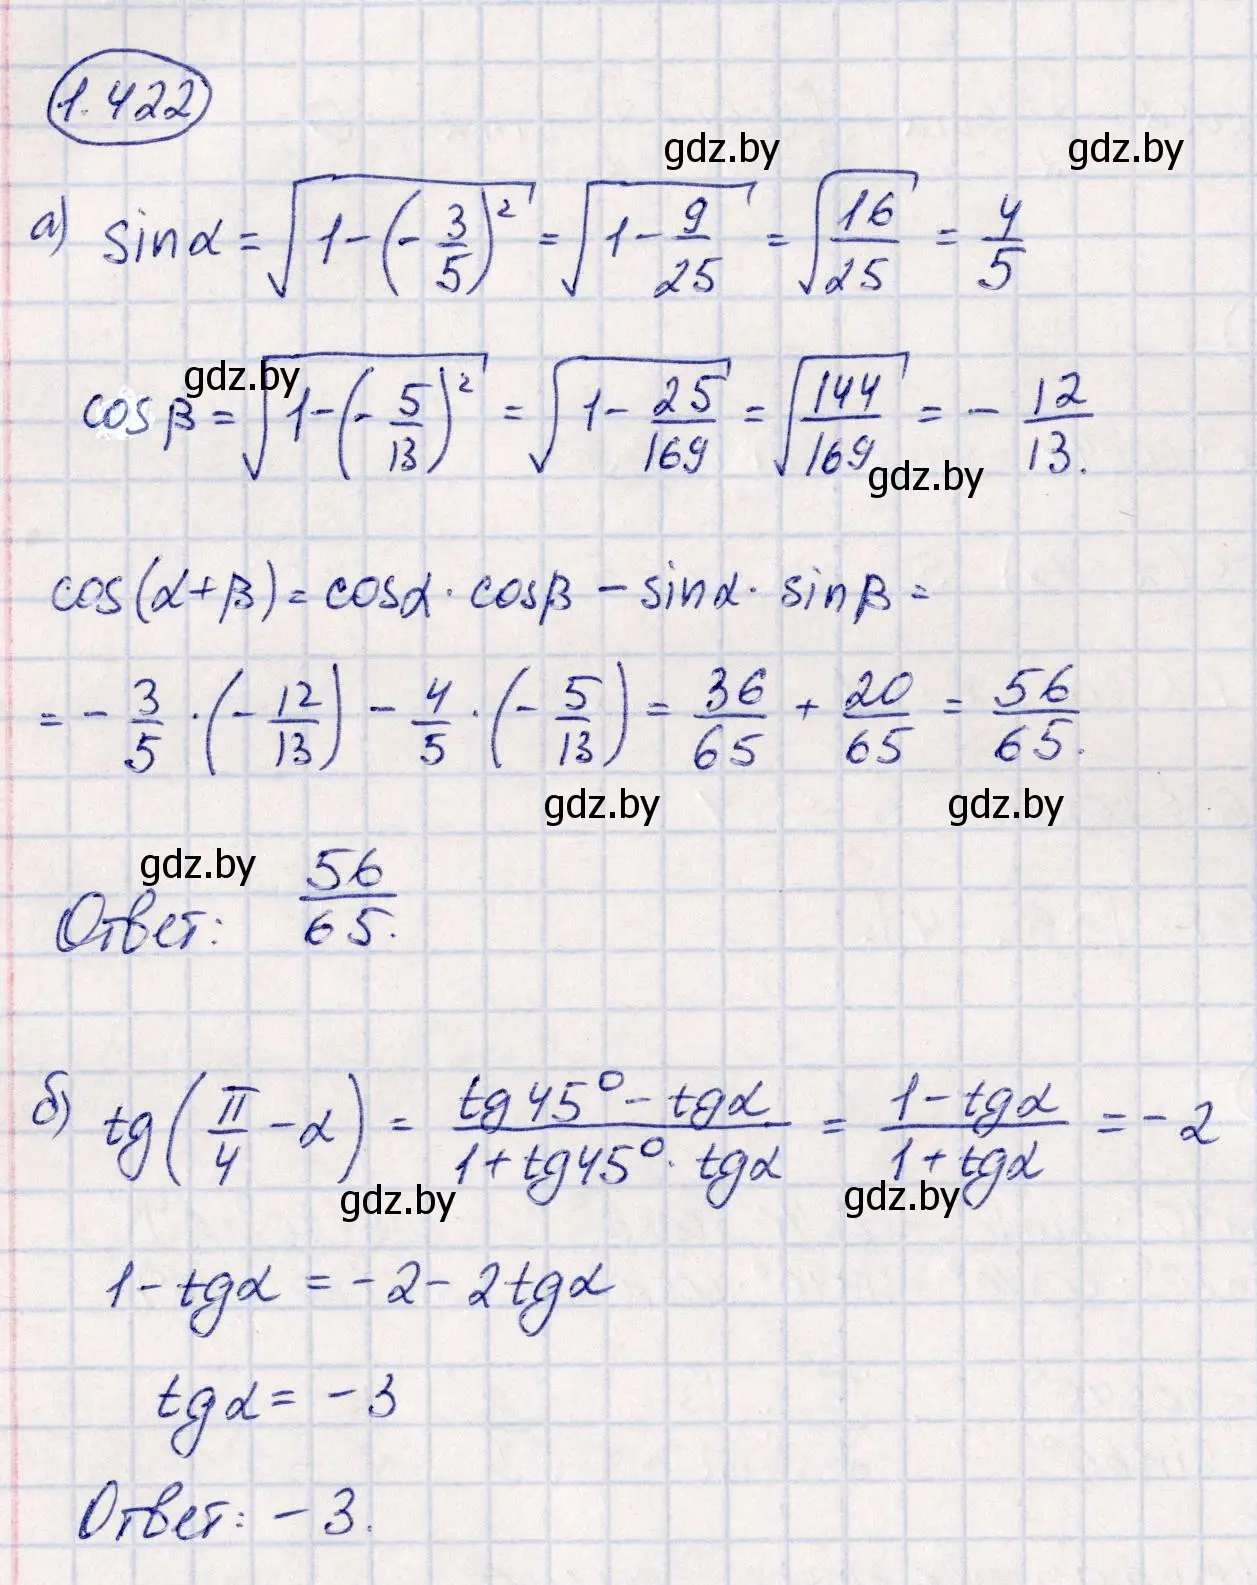 1.422
gdz.by gdz.by
а) sinα = √(1-(-3/5)²) = √(1-9/25) = √(16/25) = 4/5
gdz.by
cosβ = √(1-(-5/13)²) = √(1-25/169) = √(144/169) = -12/13.
gdz.by
cos(α+β) = cosα · cosβ - sinα · sinβ =
= -3/5 · (-12/13) - 4/5 · (-5/13) = 36/65 + 20/65 = 56/65.
gdz.by gdz.by
gdz.by
Ответ: 56/65.
б) tg(π/4 - α) = (tg45° - tgα)/(1+tg45° · tgα) = (1-tgα)/(1+tgα) = -2
gdz.by gdz.by
1-tgα = -2-2tgα
tgα = -3
Ответ: -3.